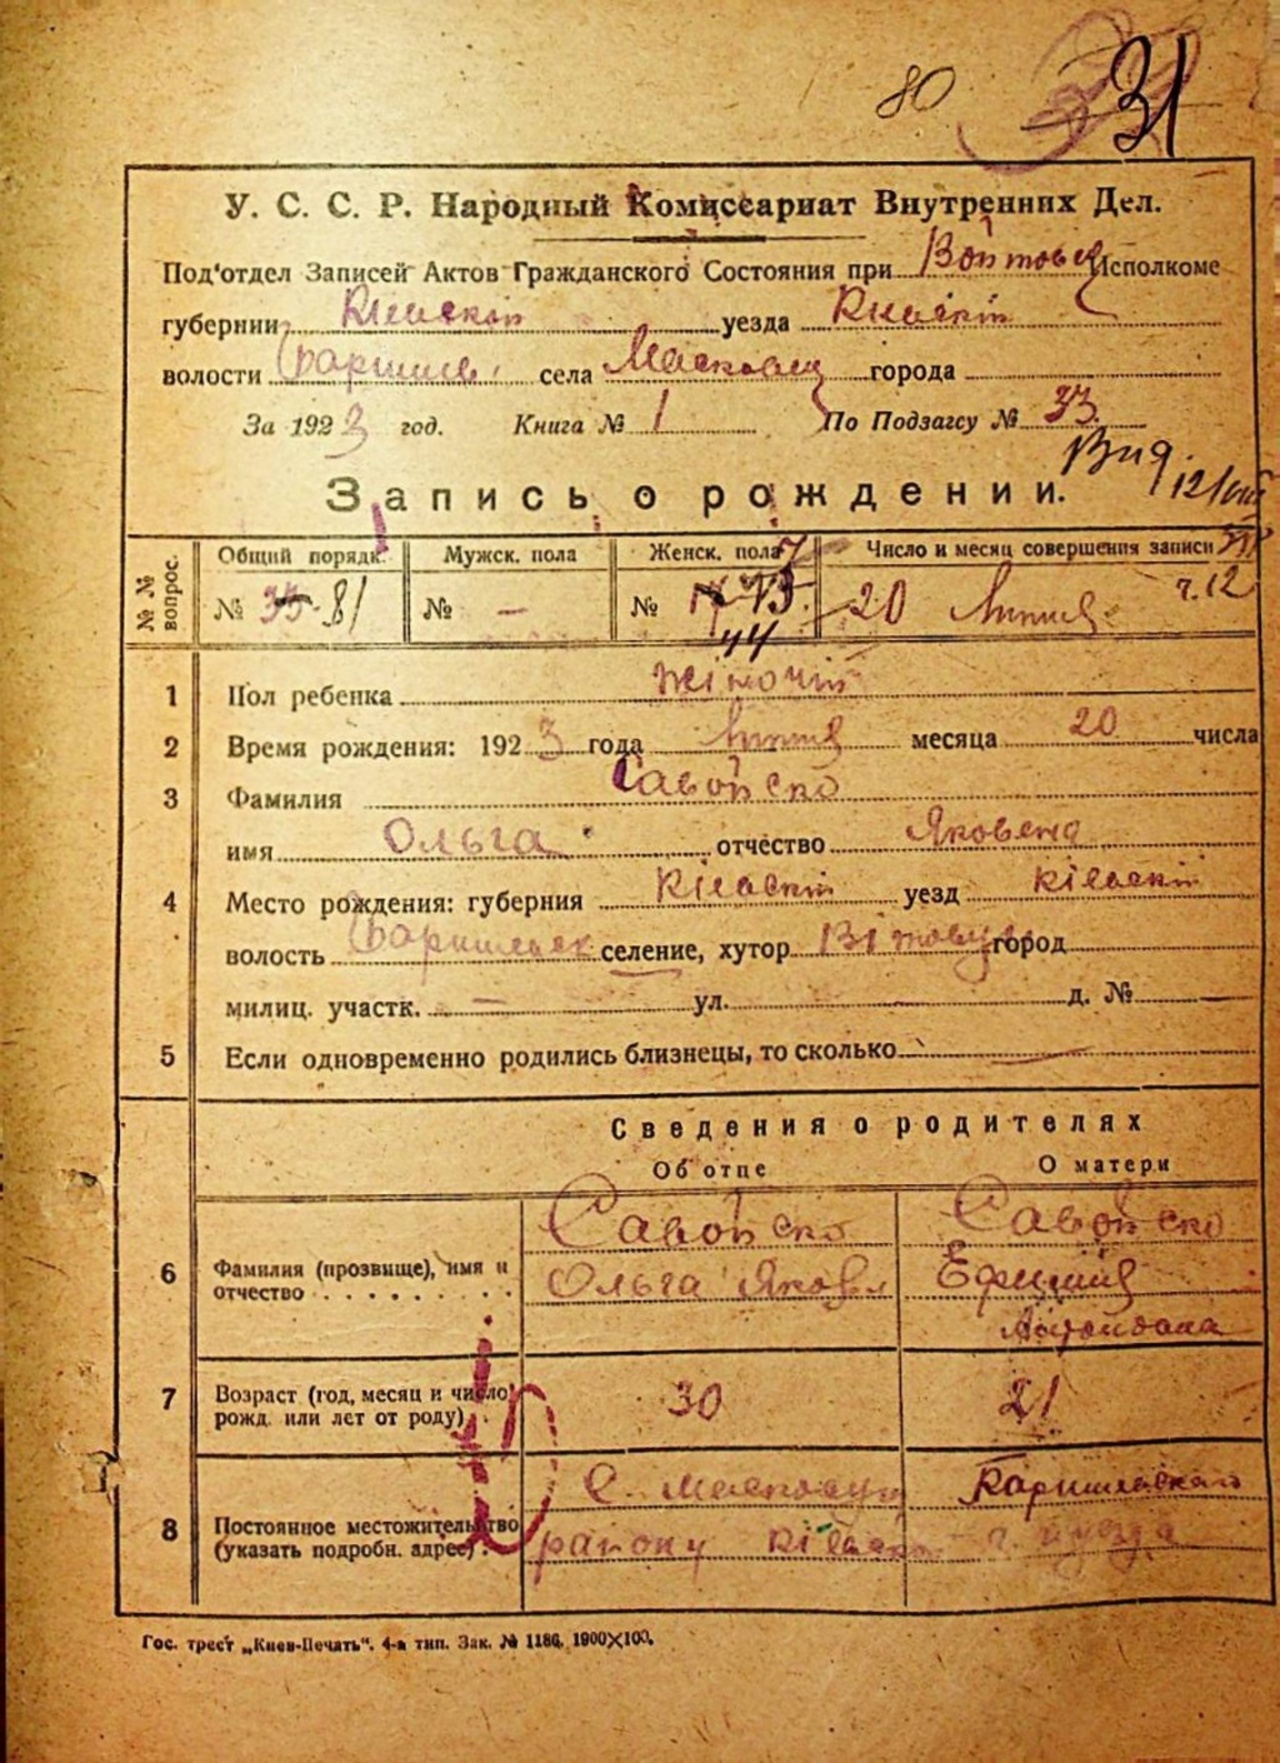 80 31
У. С. С. Р. Народный Комиссариат Внутренних Дел.
Под'отдел Записей Актов Гражданского Состояния при Войтовец Исполкоме
губернии Кіевскоп уезда Киевскіп
волости Баришев. села Масковец города
За 1923 год. Книга № 1 По Подзагсу № 33.
Вид.
Запись о рождении.
№ № вопрос. Общий порядк. Мужск. пола Женск. пола Число и месяц совершения записи
№ 81 № — № 20 Липця ч. 12
44
1 Пол ребенка жіночій
2 Время рождения: 1923 года Липця месяца 20 числа
3 Фамилия Савойско
имя Ольга отчество Яковена
4 Место рождения: губерния Кіевскіп уезд Кіевскіп
волость Баришевск селение, хутор Війтовци город
милиц. участк. — ул. д. №
5 Если одновременно родились близнецы, то сколько
Сведения о родителях
Об отце О матери
6 Фамилия (прозвище), имя и отчество Савойско Савойско
Ольга Яковл Ефимия
7 Возраст (год, месяц и число рожд. или лет от роду) 30 21
8 Постоянное местожительство (указать подробн. адрес) С. Масковци Баришевского
району Кіевской п. уезда
Гос. трест „Киев-Печать". 4-я тип. Зак. № 1186. 1900×100.